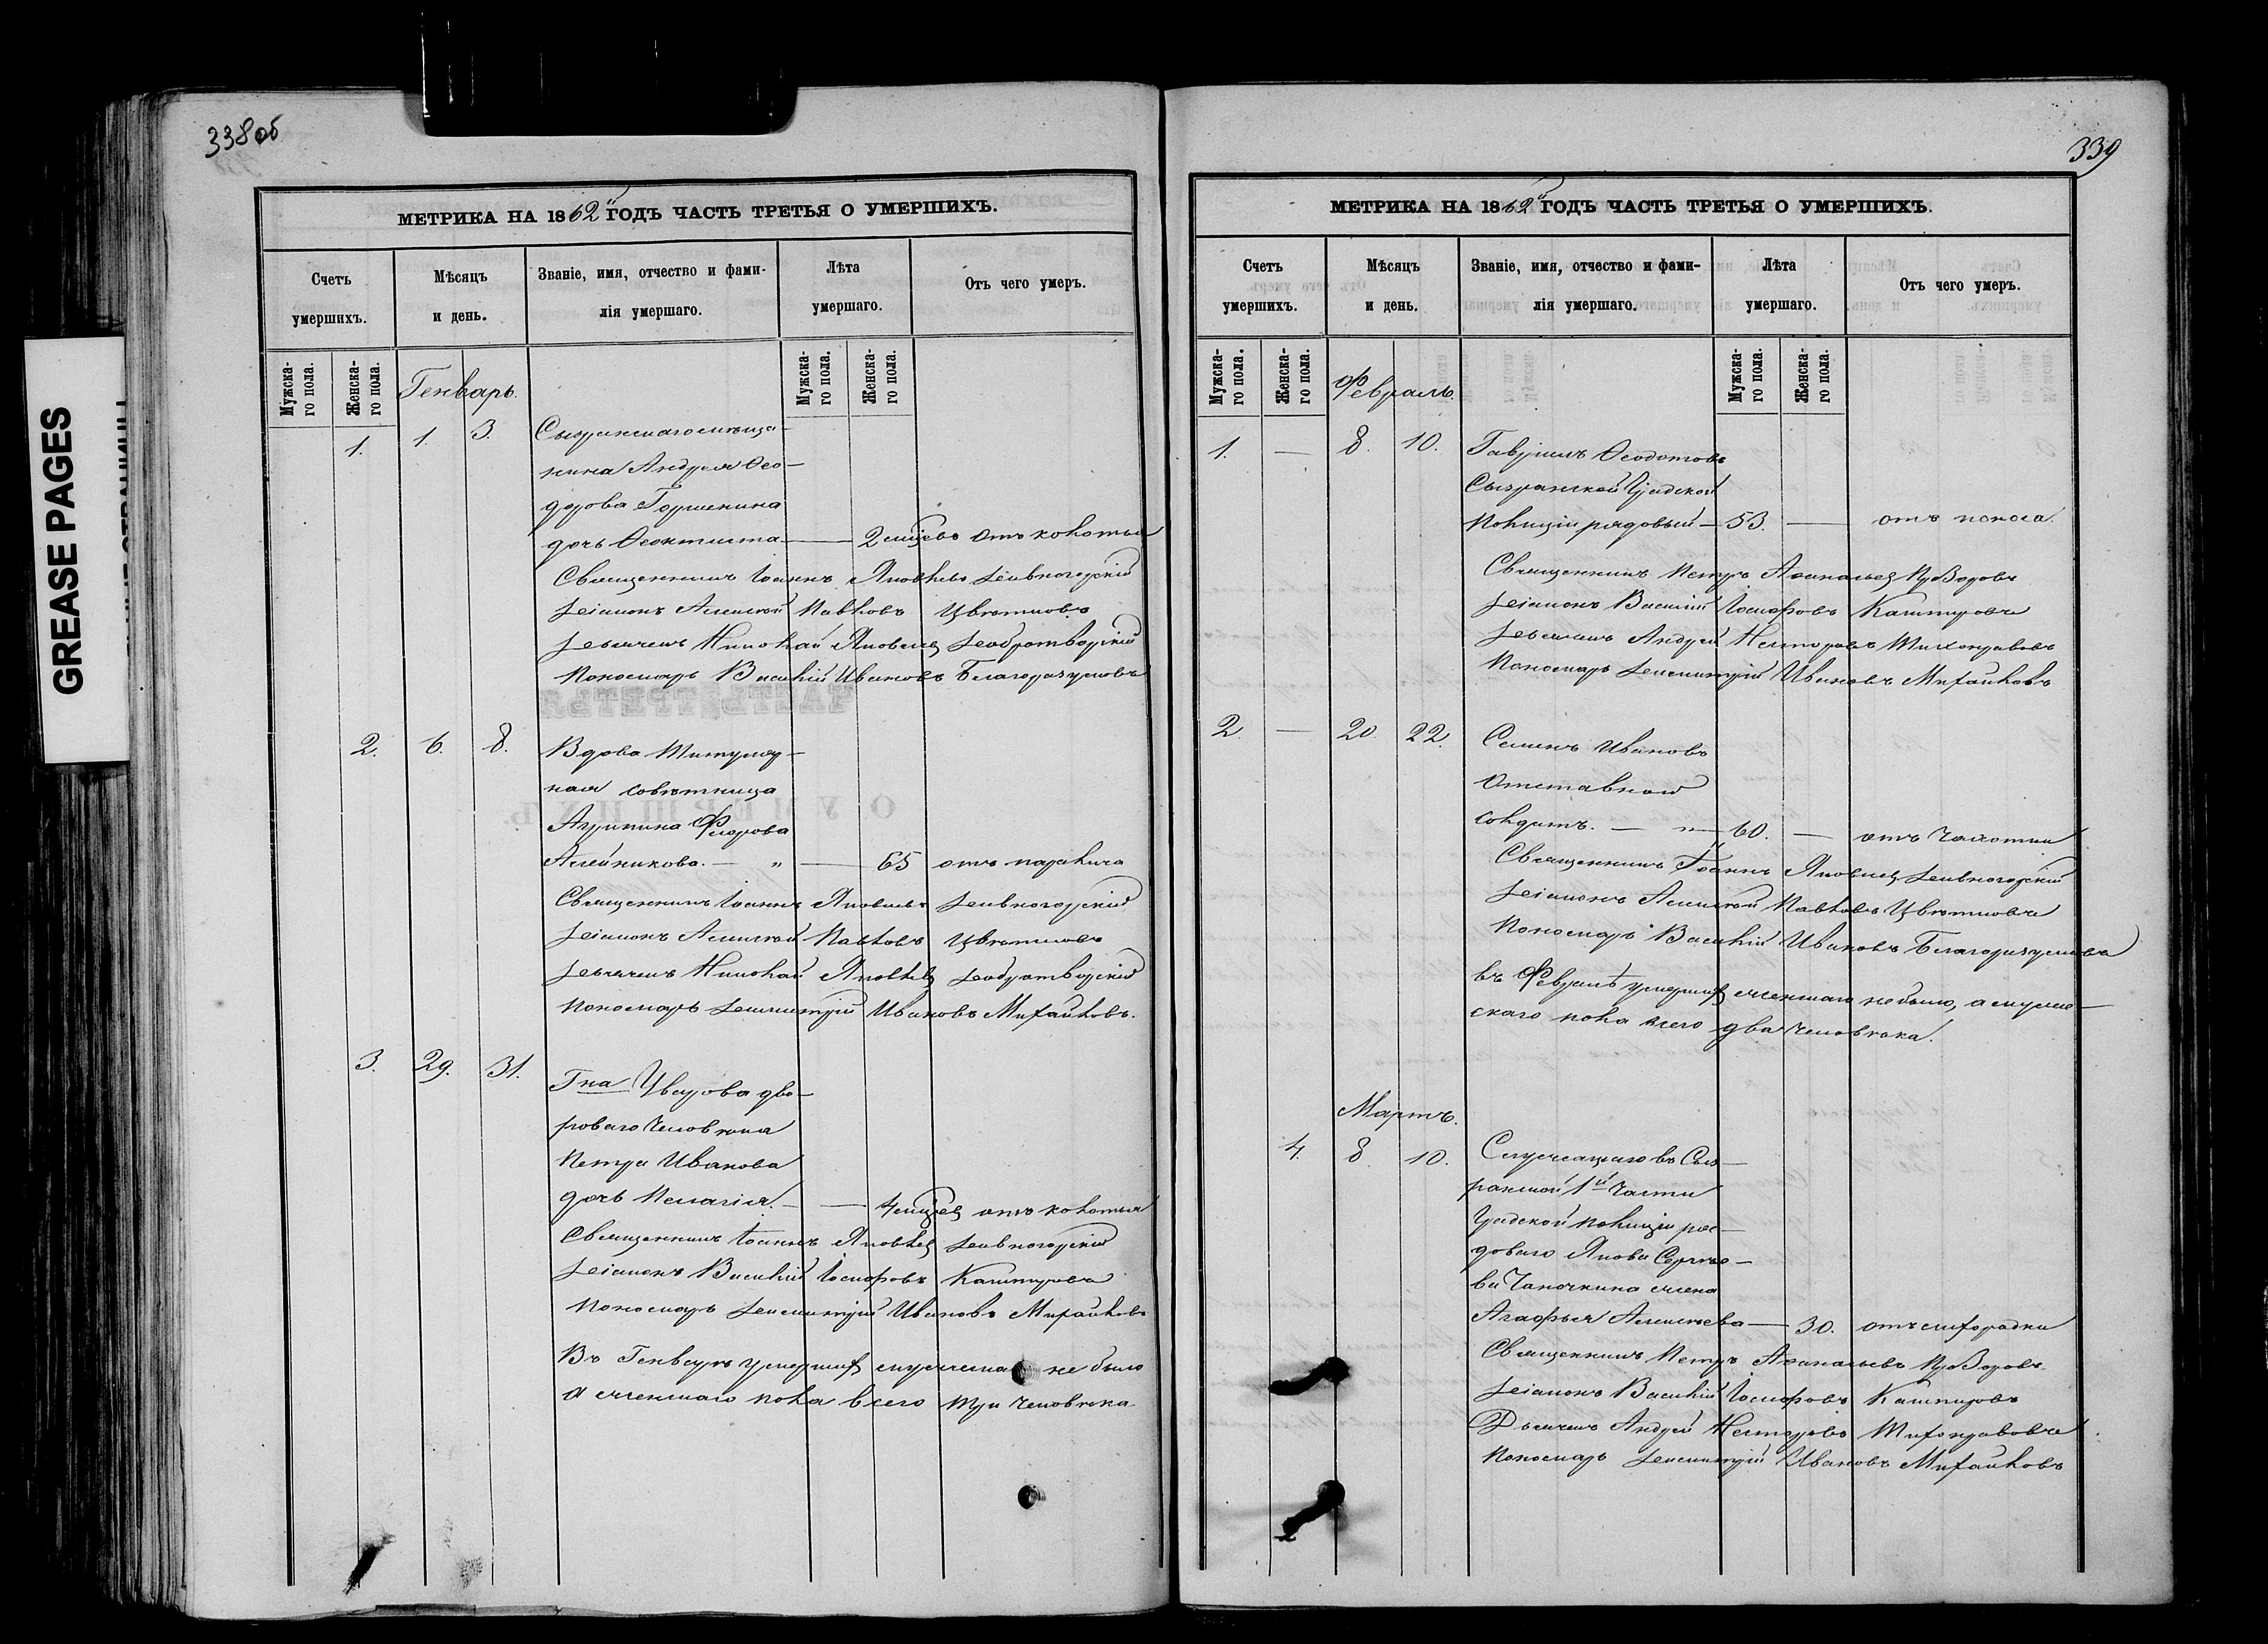 338об
МЕТРИКА НА 1862й ГОДЪ ЧАСТЬ ТРЕТЬЯ О УМЕРШИХЪ.
Счетъ умершихъ.
Мѣсяцъ и день.
Званіе, имя, отчество и фами-
лія умершаго.
Лѣта умершаго.
Отъ чего умеръ.
Мужска-
го пола.
Женска-
го пола.
Генварь.
Мужска-
го пола.
Женска-
го пола.
1. 1. 3. Сызранскаго мѣща-
нина Андрея Ѳео-
дорова Горшенина
дочь Ѳеоктиста — 2 мѣсѧ отъ колотья
Священникъ Іоаннъ Яковлевъ Дивногорскій
Діаконъ Алексѣй Павловъ Цвѣтковъ
Дьячекъ Николай Яковлевъ Добротворскій
Пономарь Василій Ивановъ Благоразумовъ
2. 6. 8. Вдова Титуляр-
ная совѣтница
Агрипина Федорова
Алейникова. — „ — 65 отъ паралича
Священникъ Іоаннъ Яковлевъ Дивногорскій
Діаконъ Алексѣй Павловъ Цвѣтковъ
Дьячекъ Николай Яковлевъ Добротворскій
Пономарь Димитрій Ивановъ Михайловъ.
3. 29. 31. Гна дво-
роваго человѣка
Петра Иванова
дочь Пелагія. — отъ колотья
Священникъ Іоаннъ Яковлевъ Дивногорскій
Діаконъ Василій Іосифовъ Кашпуровъ
Пономарь Димитрій Ивановъ Михайловъ
Въ Генварѣ умершихъ не было
а женскаго пола всего три человѣка
GREASE PAGES
339
МЕТРИКА НА 1862й ГОДЪ ЧАСТЬ ТРЕТЬЯ О УМЕРШИХЪ.
Счетъ умершихъ.
Мѣсяцъ и день.
Званіе, имя, отчество и фами-
лія умершаго.
Лѣта умершаго.
Отъ чего умеръ.
Мужска-
го пола.
Женска-
го пола.
Февраль.
Мужска-
го пола.
Женска-
го пола.
1. — 8. 10. Гавріилъ Ѳеодотовъ
Сызранской Градской
Полиціи рядовый — 53. — отъ поноса.
Священникъ Петръ Аѳанасьевъ
Діаконъ Василій Іосифовъ Кашпуровъ
Дьячекъ Андрей Несторовъ Тихонравовъ
Пономарь Димитрій Ивановъ Михайловъ
2. — 20. 22. Семенъ Ивановъ
Отставной
солдатъ. — „ — 60. — отъ чахотки
Священникъ Іоаннъ Яковлевъ Дивногорскій
Діаконъ Алексѣй Павловъ Цвѣтковъ
Пономарь Василій Ивановъ Благоразумовъ
въ Февралѣ умершихъ женскаго не было, а муже-
скаго пола всего два человѣка.
Мартъ.
4. 8. 10. Служащаго въ Сыз-
ранской 1й части
Градской Полиціи ря-
доваго Якова Сергѣе-
ва жена
Агафья Алексѣева — 30. отъ лихорадки
Священникъ Петръ Аѳанасьевъ
Діаконъ Василій Іосифовъ Кашпуровъ
Дьячекъ Андрей Несторовъ Тихонравовъ
Пономарь Димитрій Ивановъ Михайловъ